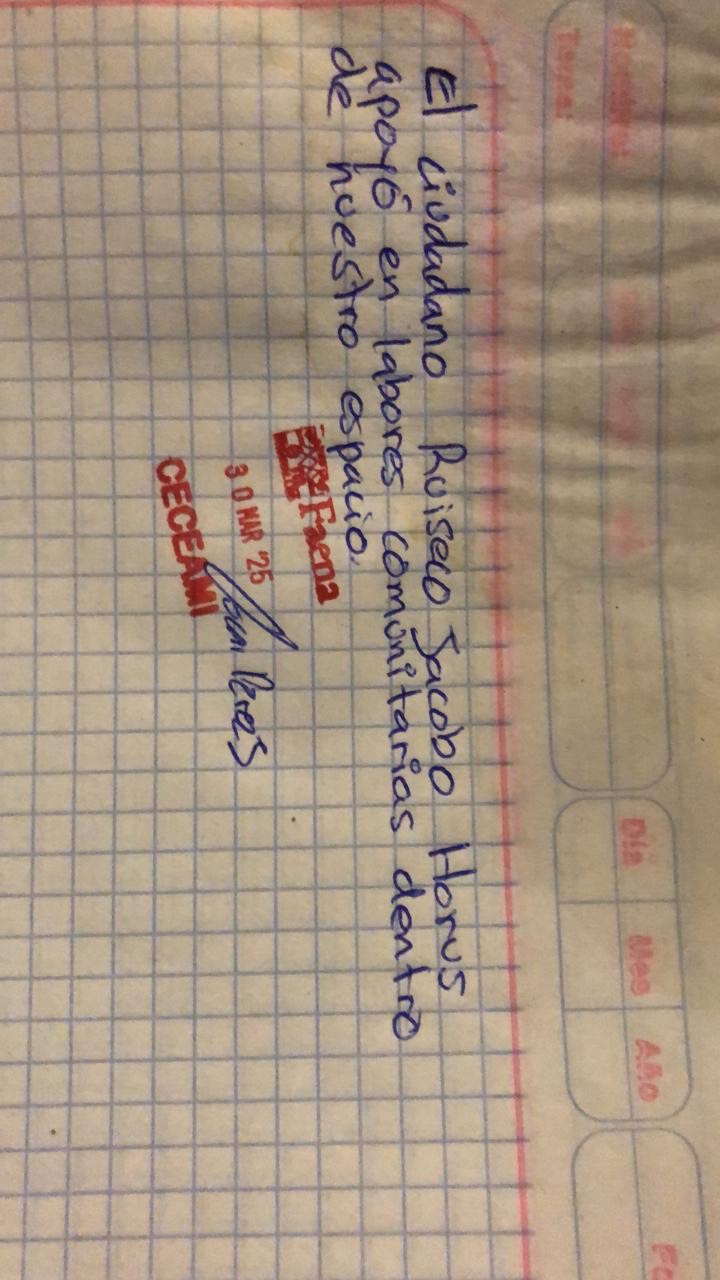 Nombre:
Tema:
Día Mes Año
El ciudadano Ruiseco Jacobo Horus
apoyó en labores comunitarias dentro
de nuestro espacio.
Faena
30 MAR '25
CECEAMI